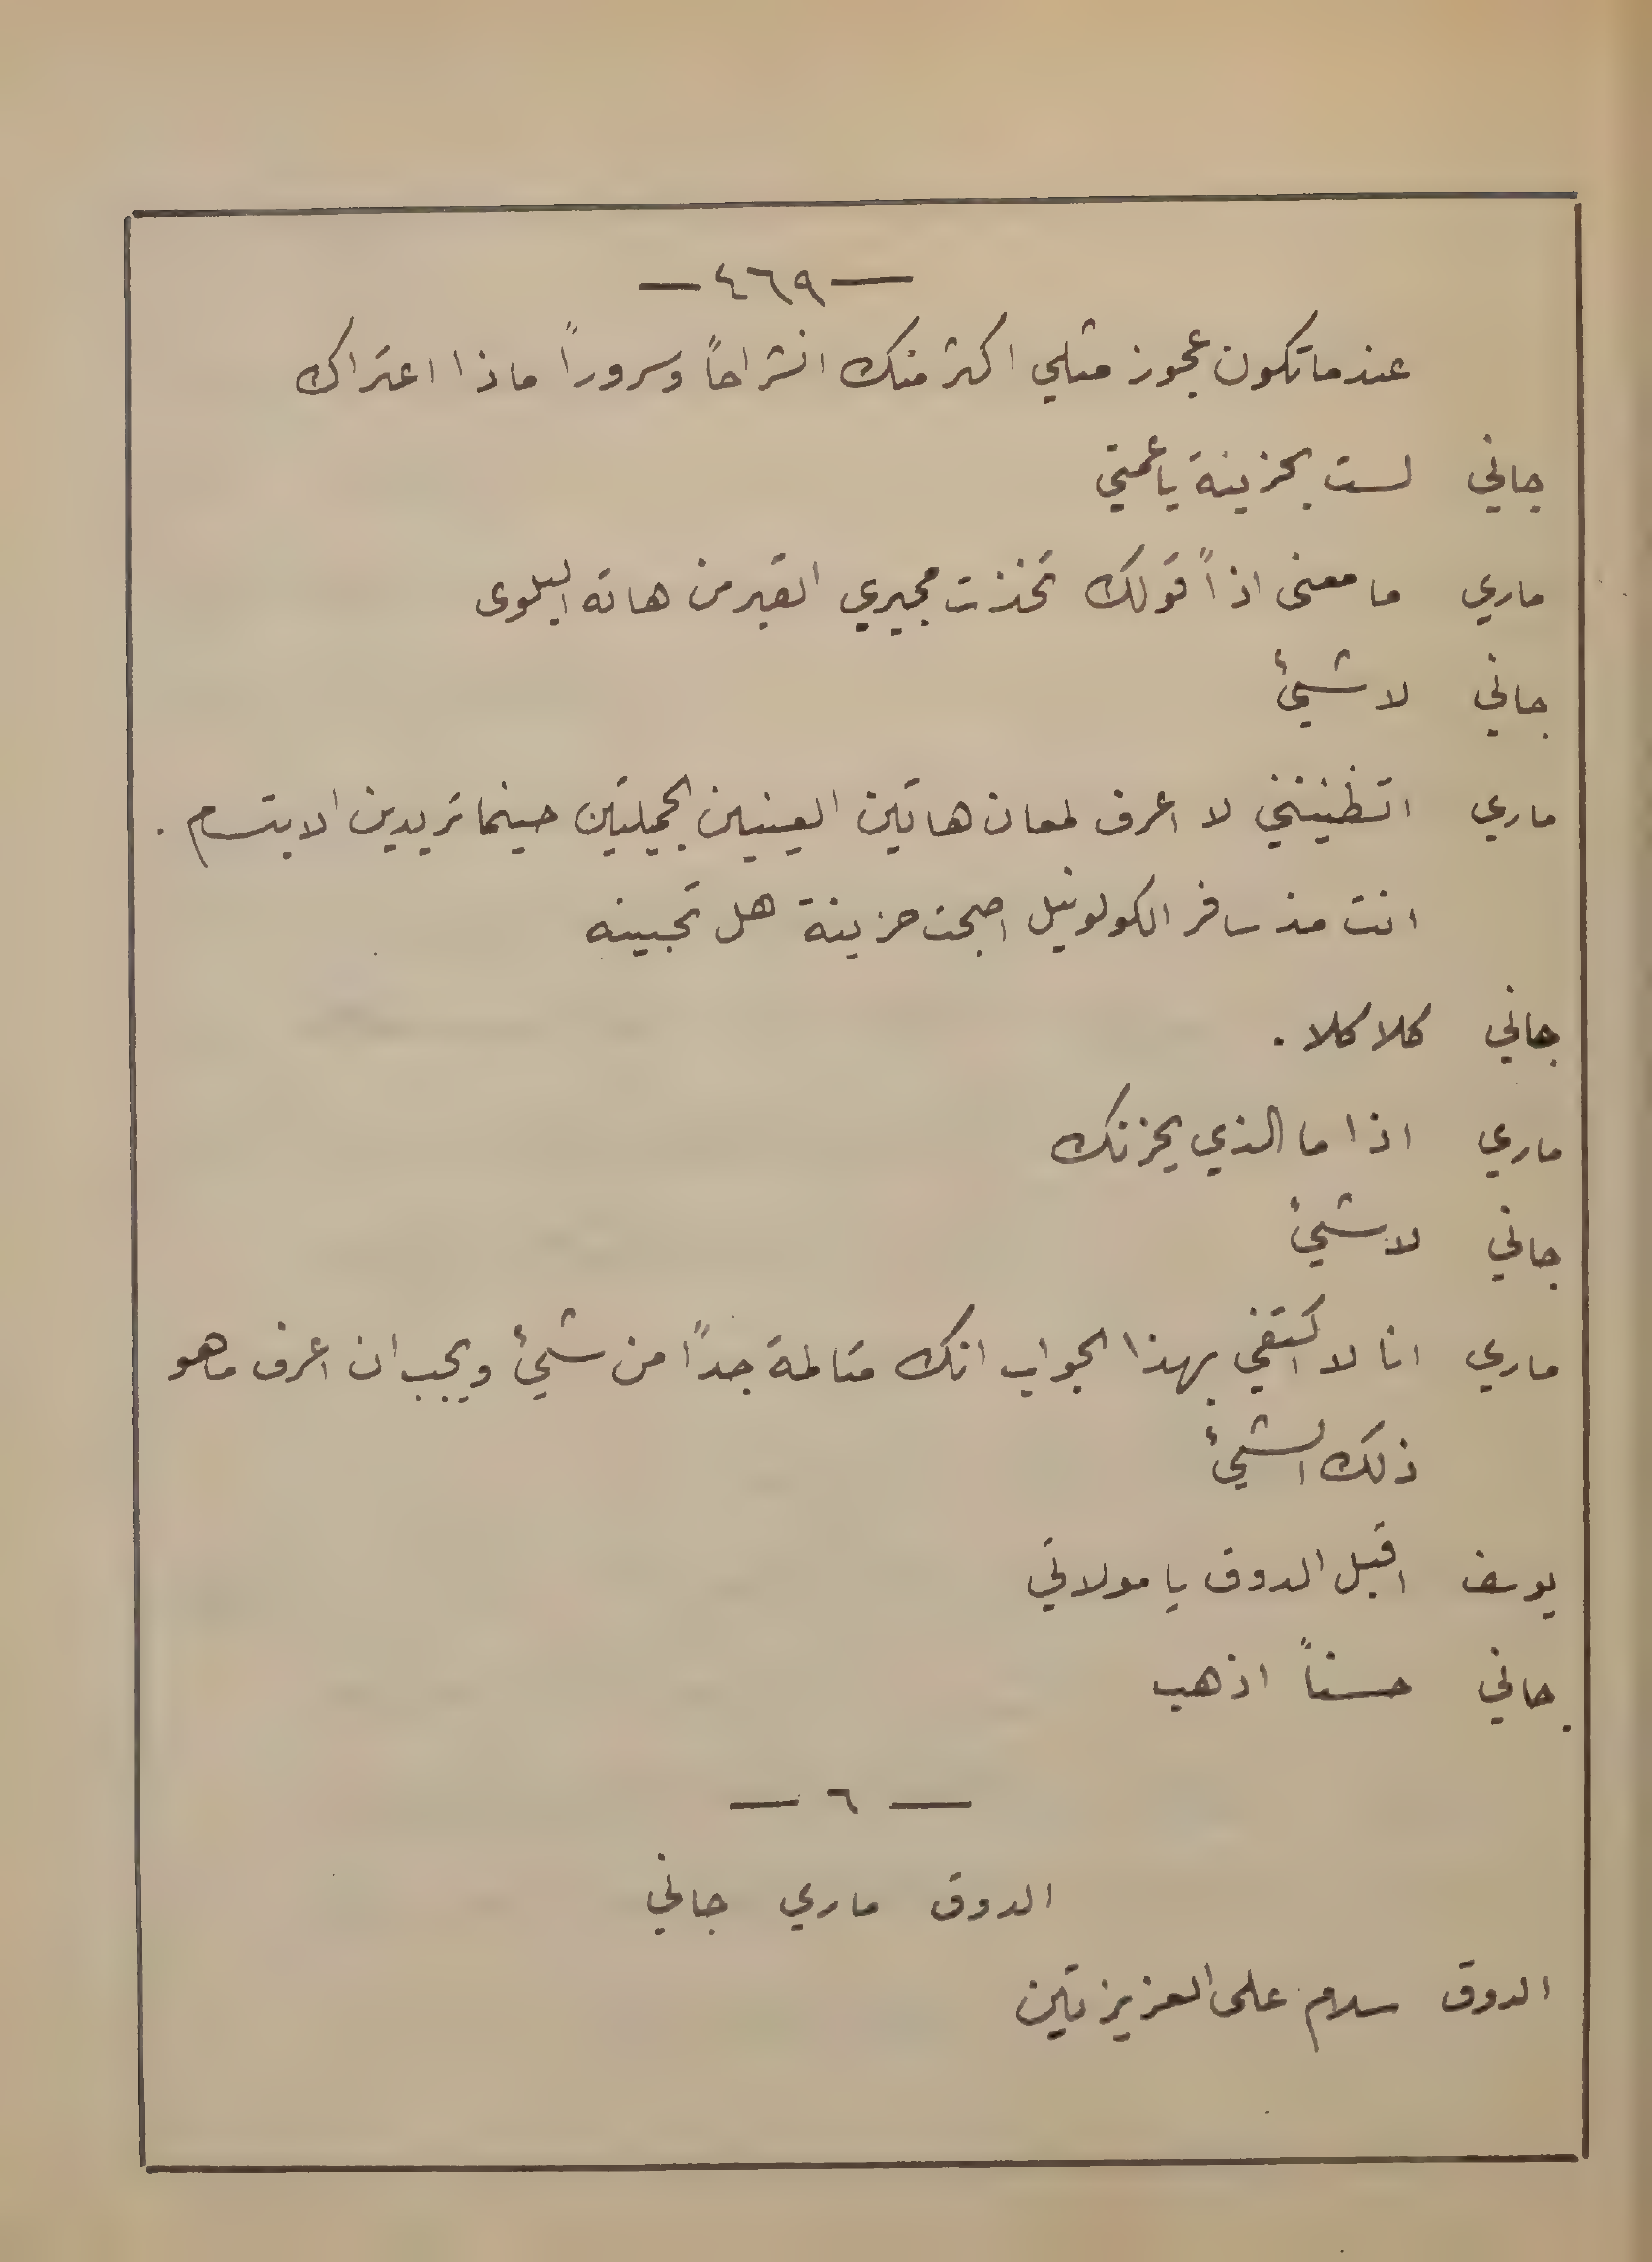 — ٤٦٩ —
عندما تكون عجوز مثلي اكثر منك انشراحاً وسروراً ماذا اعتراك
جاني لست بحزينة ياعمتي
ماري ما معنى اذاً قولك تخذت مجيري القبر من هاته البلوى
جاني لا شيئ
ماري اتظنينني لا اعرف لمعان هاتين العينين الجميلتين حينما تريدين الابتسام .
انت مذ سافر الكولونيل اصبحت حزينة هل تحبينه
جاني كلا كلا .
ماري اذا ما الذي يحزنك
جاني لا شيئ
ماري انا لا اكتفي بهذا الجواب انك متالمة جداً من شيئ ويجب ان اعرف ماهو
ذلك الشيئ
يوسف اقبل الدوق يا مولاتي
جاني حسناً اذهب
— ٦ —
الدوق ماري جاني
الدوق سلام على العزيزتين